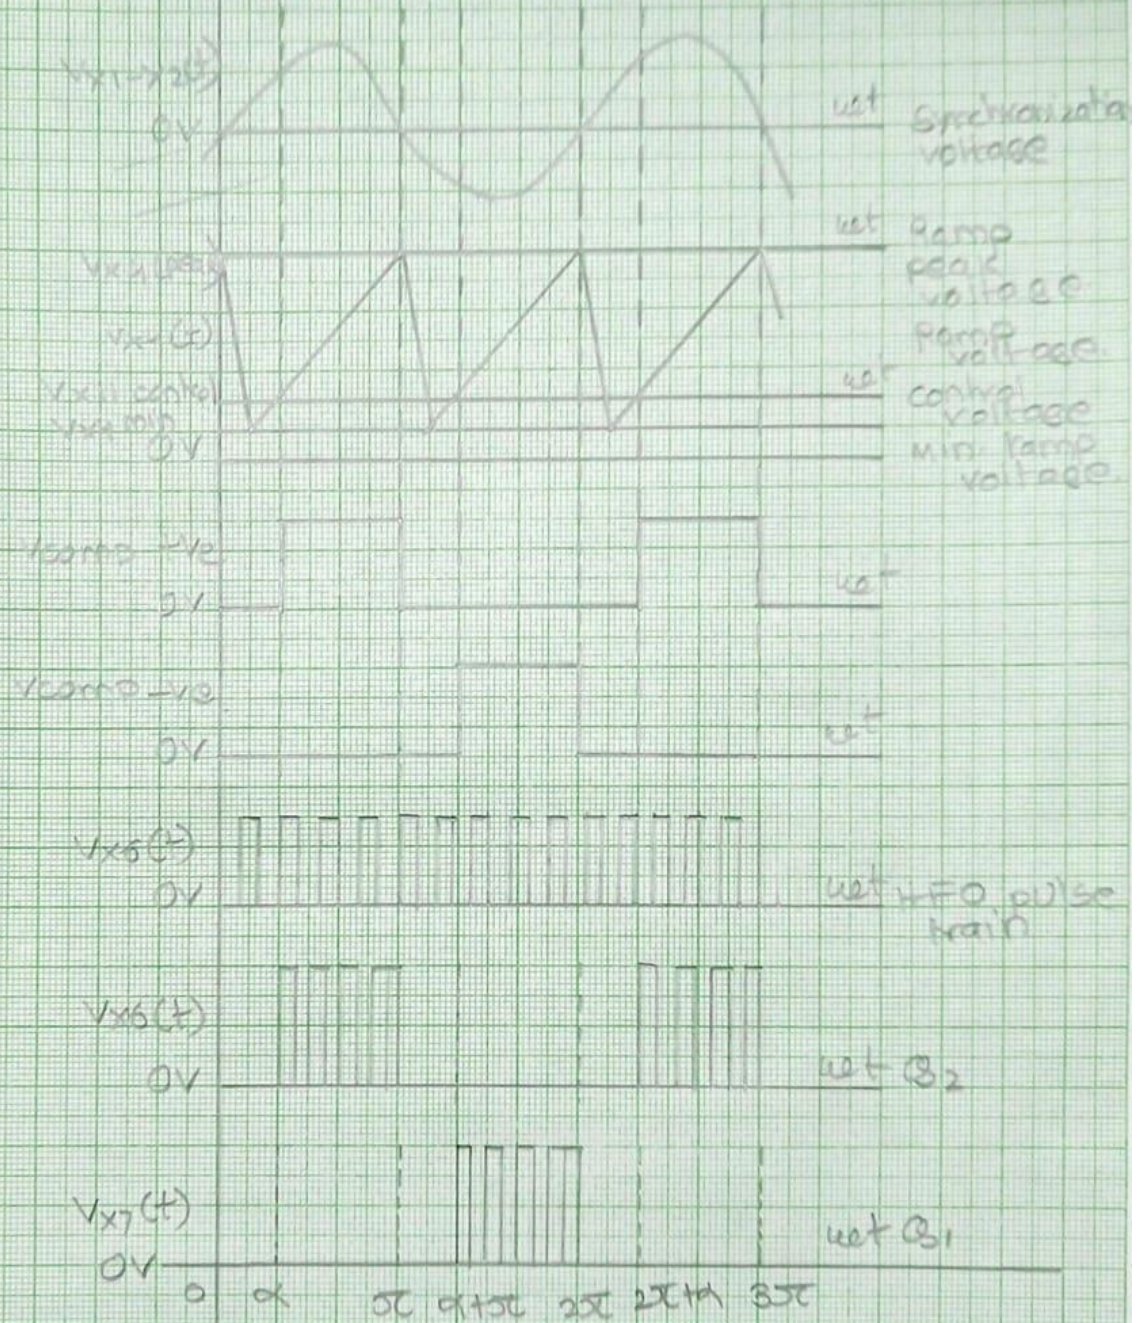 Vx1-x2(t)
0V
wt
Synchronization
voltage
wt
Ramp
peak
voltage
Vx4(t)
Ramp
voltage
Vx4 control
wt
control
voltage
Vx4 min
0V
Min. ramp
voltage
-ve
0V
wt
-ve
0V
wt
Vx5(t)
0V
wt
pulse
train
Vx6(t)
0V
wt Q2
Vx7(t)
0V
wt Q1
0 α π α+π 2π 2π+α 3π